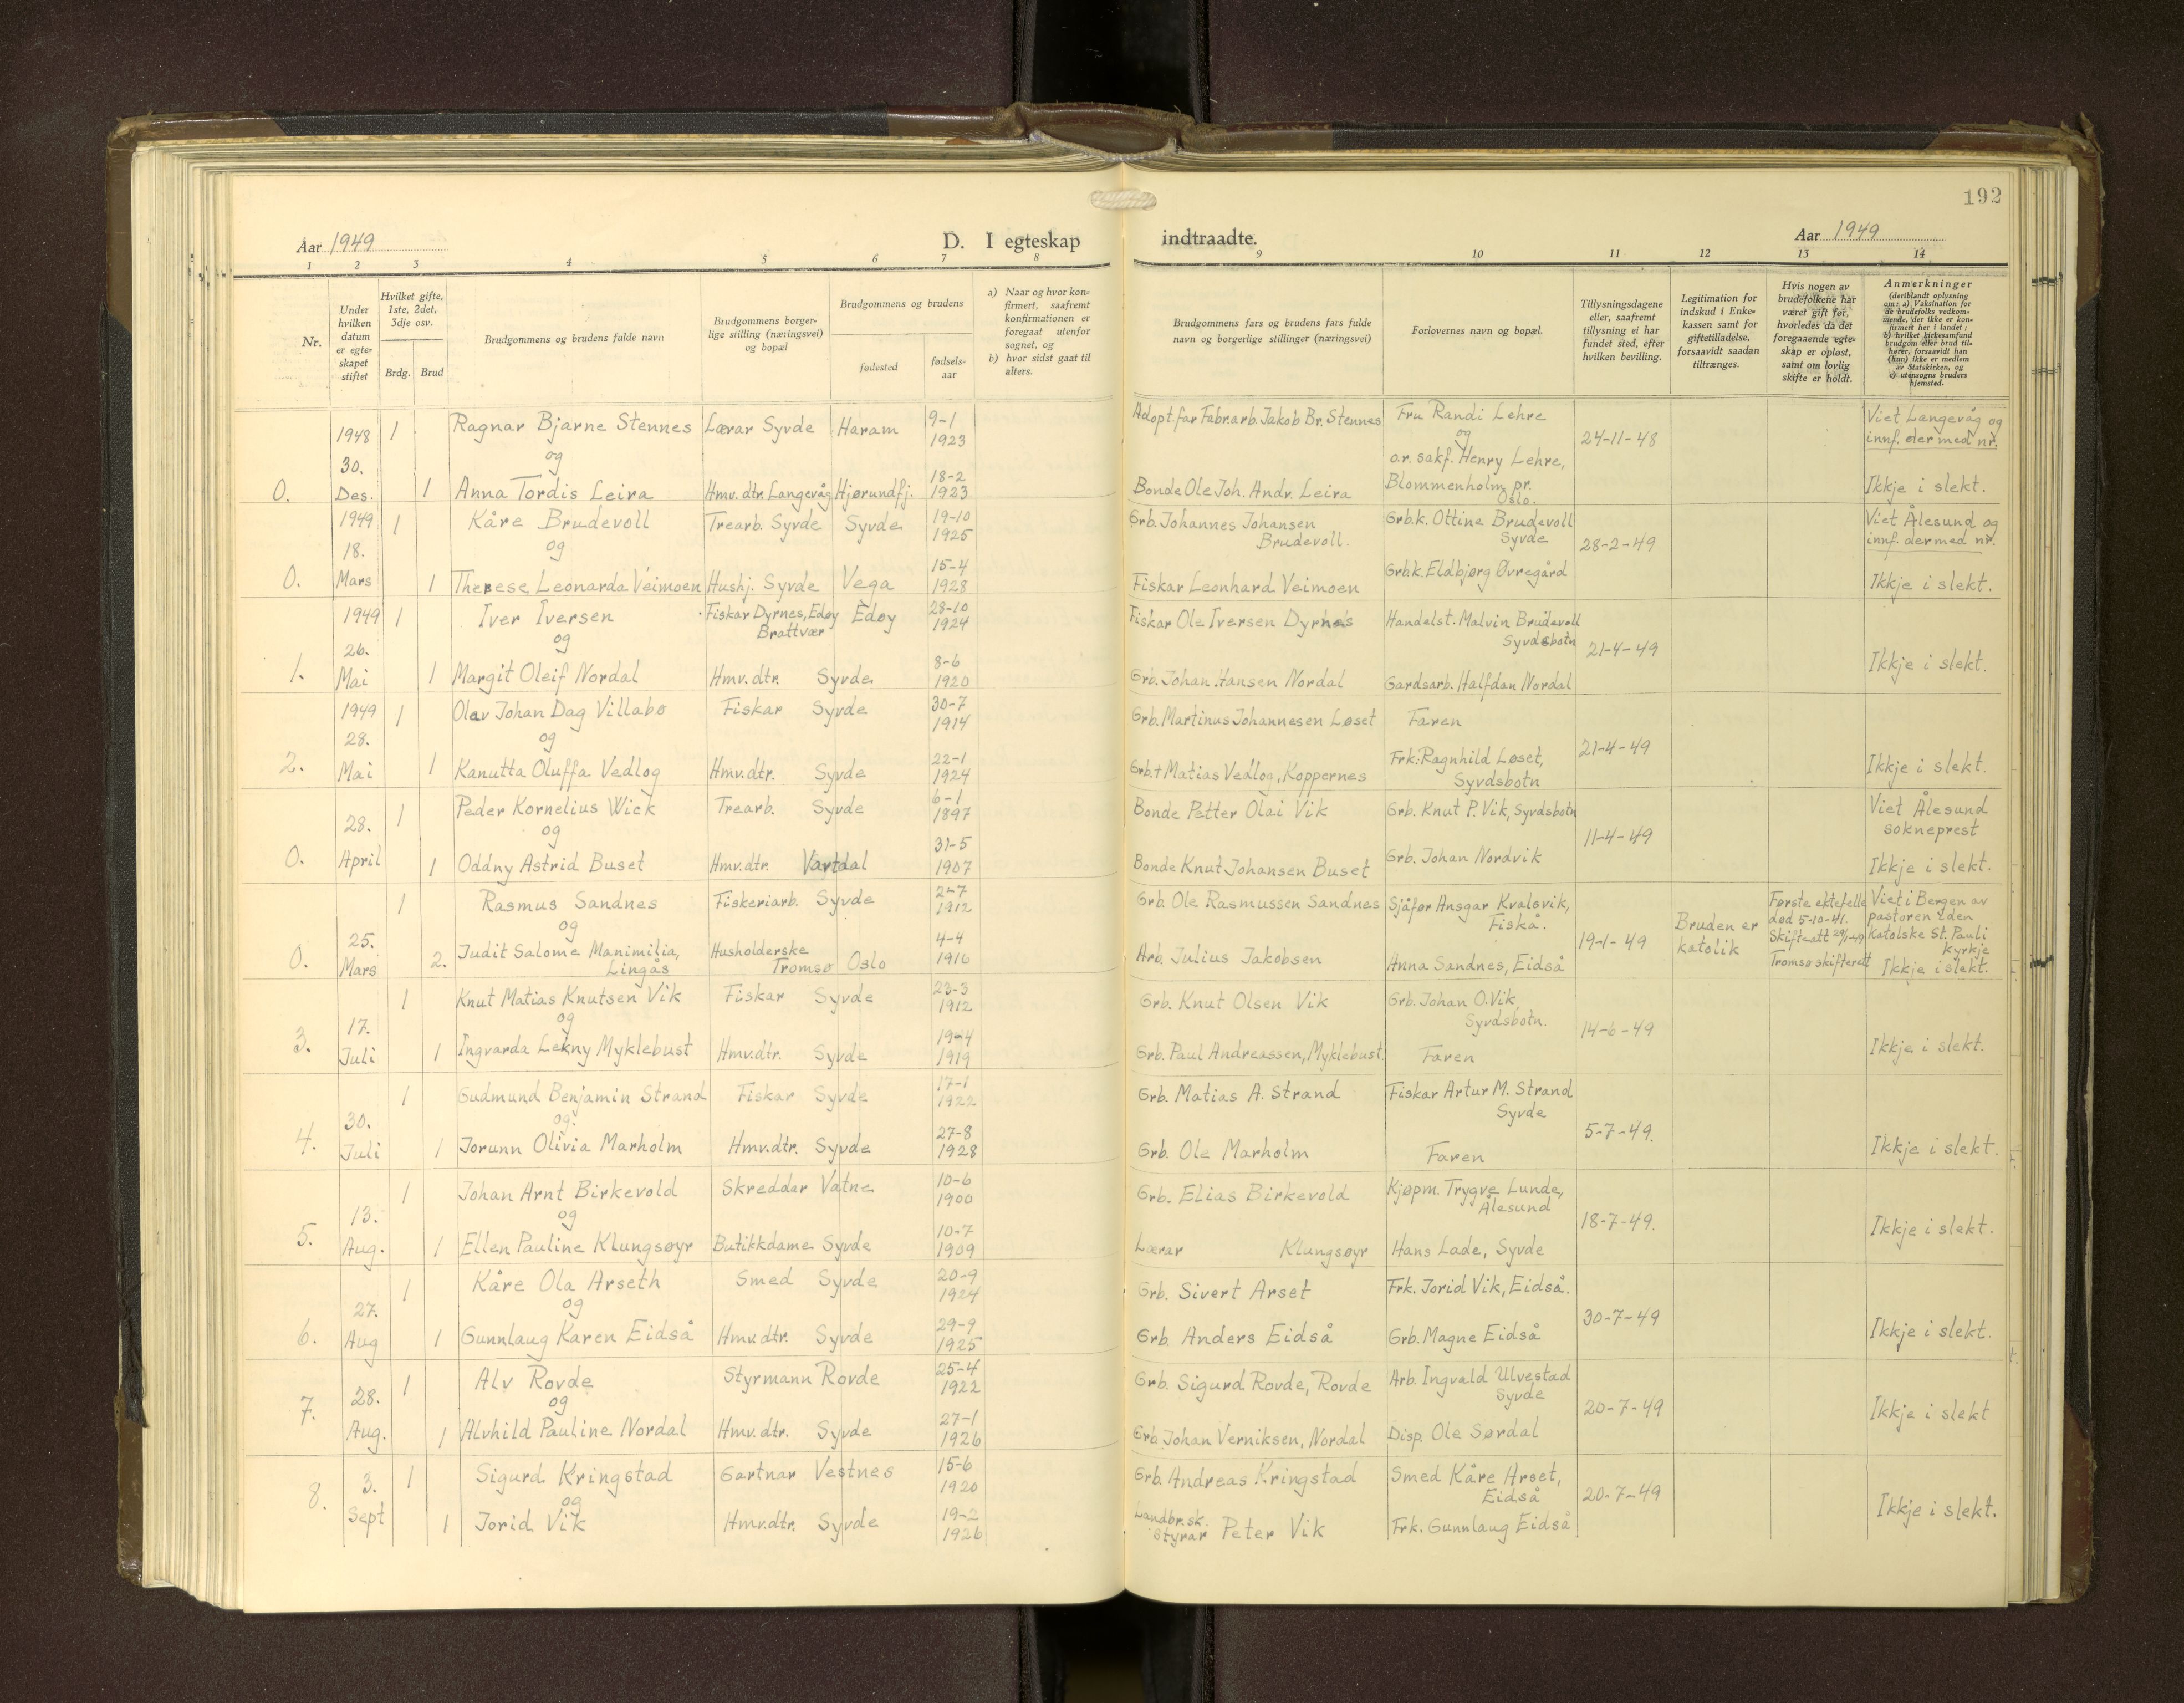 192
Aar 1949
D. I egteskap indtraadte.
Aar 1949
1 2 3 4 5 6 7 8 9 10 11 12 13 14
Nr.
Under hvilken datum er egteskapet stiftet
Hvilket gifte, 1ste, 2det, 3dje osv.
Brdg. Brud
Brudgommens og brudens fulde navn
Brudgommens borgerlige stilling (næringsvei) og bopæl
Brudgommens og brudens
fødested
fødselsaar
a) Naar og hvor konfirmert, saafremt konfirmationen er foregaat utenfor sognet, og
b) hvor sidst gaat til alters.
Brudgommens fars og brudens fars fulde navn og borgerlige stillinger (næringsvei)
Forlovernes navn og bopæl.
Tillysningsdagene eller, saafremt tillysning ei har fundet sted, efter hvilken bevilling.
Legitimation for indskud i Enkekassen samt for giftetilladelse, forsaavidt saadan tiltrænges.
Hvis nogen av brudefolkene har været gift før, hvorledes da det foregaaende egteskap er opløst, samt om lovlig skifte er holdt.
Anmerkninger
(deriblandt oplysning om: a) Vaksination for de brudefolks vedkommende, der ikke er konfirmert her i landet; b) hvilket kirkesamfund brudgom eller brud tilhører, forsaavidt han (hun) ikke er medlem av Statskirken, og c) utensogns bruders hjemsted.
0. 1948 30. Des.
1 Ragnar Bjarne Stennes Lærar Syvde Haram 9-1 1923 Adopt.far Fabr.arb. Jakob Br. Stennes Fru Randi Lehre
og
1 Anna Tordis Leira Hmv. dtr. Langevåg Hjørundfj. 18-2 1923 Bonde Ole Joh. Andr. Leira o.r. sakf. Henry Lehre, Blommenholm pr. Oslo.
24-11-48 Viet Langevåg og innf. der med nr. Ikkje i slekt.
0. 1949 18. Mars
1 Kåre Brudevoll Trearb. Syvde Syvde 19-10 1925 Grb. Johannes Johansen Brudevoll. Grb.k. Ottine Brudevoll Syvde
og
1 Therese Leonarda Veimoen Hushj. Syvde Vega 15-4 1928 Fiskar Leonhard Veimoen Grb.k. Eldbjørg Øvregård
28-2-49 Viet Ålesund og innf. der med nr. Ikkje i slekt.
1. 1949 26. Mai
1 Iver Iversen Fiskar Dyrnes, Edøy Brattvær Edøy 28-10 1924 Fiskar Ole Iversen Dyrnes Handelst. Malvin Brudevoll Syvdsbotn
og
1 Margit Oleif Nordal Hmv. dtr. Syvde 8-6 1920 Grb. Johan Hansen Nordal Gardsarb. Halfdan Nordal
21-4-49 Ikkje i slekt.
2. 1949 28. Mai
1 Olav Johan Dag Villabø Fiskar Syvde 30-7 1914 Grb. Martinus Johannesen Løset Faren
og
1 Kanutta Oluffa Vedlog Hmv.dtr. Syvde 22-1 1924 Grb.+ Matias Vedlog, Koppernes Frk: Ragnhild Løset, Syvdsbotn
21-4-49 Ikkje i slekt.
0. 28. April
1 Peder Kornelius Wick Trearb. Syvde 6-1 1897 Bonde Petter Olai Vik Grb. Knut P. Vik, Syvdsbotn
og
1 Oddny Astrid Buset Hmv.dtr Vartdal 31-5 1907 Bonde Knut Johansen Buset Grb. Johan Nordvik
11-4-49 Viet Ålesund sokneprest Ikkje i slekt.
0. 25. Mars
1 Rasmus Sandnes Fiskeriarb. Syvde 2-7 1912 Grb. Ole Rasmussen Sandnes Sjåfør Ansgar Kvalsvik, Fiskå.
og
2. Judit Salome Manimilia, Lingås Husholderske Tromsø Oslo 4-4 1916 Arb. Julius Jakobsen Anna Sandnes, Eidså
19-1-49 Bruden er katolik Første ektefelle død 5-10-41. Skifteatt 29/1-49 Tromsø skifterett Viet i Bergen av pastoren i den Katolske St. Pauli kyrkje Ikkje i slekt.
3. 17. Juli
1 Knut Matias Knutsen Vik Fiskar Syvde 23-3 1912 Grb. Knut Olsen Vik Grb. Johan O. Vik, Syvdsbotn.
og
1 Ingvarda Lekny Myklebust Hmv.dtr. Syvde 19-4 1919 Grb. Paul Andreassen, Myklebust Faren
14-6-49 Ikkje i slekt.
4. 30. Juli
1 Gudmund Benjamin Strand Fiskar Syvde 17-1 1922 Grb. Matias A. Strand Fiskar Artur M. Strand Syvde
og
1 Jorunn Olivia Marholm Hmv.dtr. Syvde 27-8 1928 Grb. Ole Marholm Faren
5-7-49. Ikkje i slekt.
5. 13. Aug.
1 Johan Arnt Birkevold Skreddar Vatne 10-6 1900 Grb. Elias Birkevold Kjøpm. Trygve Lunde, Ålesund
og
1 Ellen Pauline Klungsøyr Butikkdame Syvde 10-7 1909 Lærar Klungsøyr Hans Lade, Syvde
18-7-49. Ikkje i slekt.
6. 27. Aug
1 Kåre Ola Arseth Smed Syvde 20-9 1924 Grb. Sivert Arset Frk. Jorid Vik, Eidså.
og
1 Gunnlaug Karen Eidså Hmv.dtr. Syvde 29-9 1925 Grb. Anders Eidså Grb. Magne Eidså
30-7-49 Ikkje i slekt.
7. 28. Aug.
1 Alv Rovde Styrmann Rovde 25-4 1922 Grb. Sigurd Rovde, Rovde Arb. Ingvald Ulvestad Syvde
og
1 Alvhild Pauline Nordal Hmv.dtr. Syvde 27-1 1926 Grb. Johan Verniksen, Nordal Disp. Ole Sørdal
20-7-49 Ikkje i slekt
8. 3. Sept
1 Sigurd Kringstad Gartnar Vestnes 15-6 1920 Grb. Andreas Kringstad Smed Kåre Arset, Eidså
og
1 Jorid Vik Hmv.dtr. Syvde 19-2 1926 Landbr.sk. styrar Peter Vik Frk. Gunnlaug Eidså
20-7-49 Ikkje i slekt.